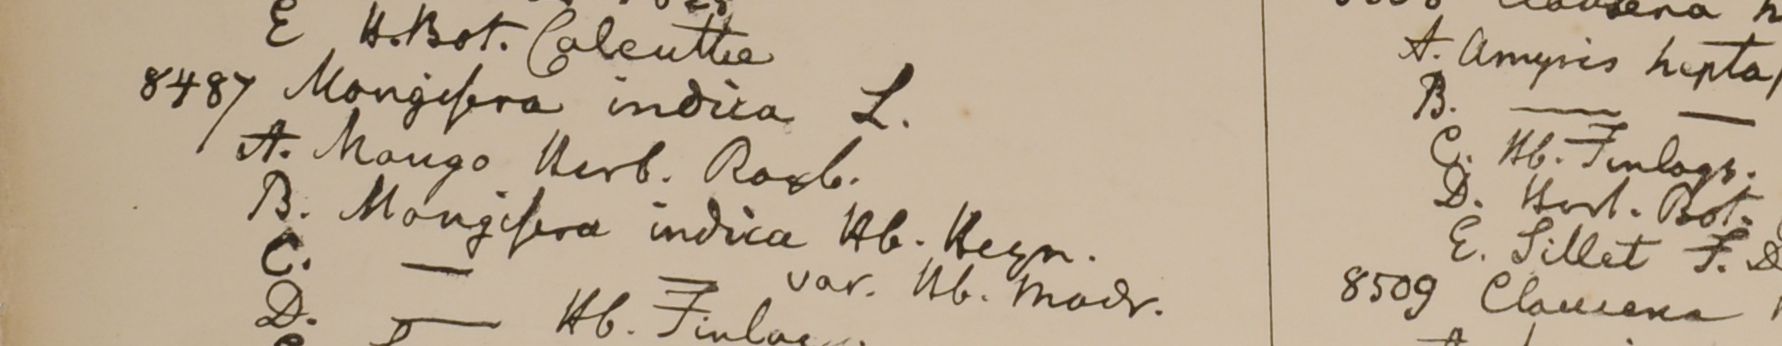 E H.Bot. Calcutta
8487 Mangifera indica L.
A. Mango Herb. Roxb.
B. Mangifera indica Hb. Heyn.
C. — — var. Hb. Madr.
D. — Hb. Finlays
A. Amyris hepta
B. — —
C. Hb. Finlays.
D. Herb. Bot.
E. Sillet F. D
8509 Clausena